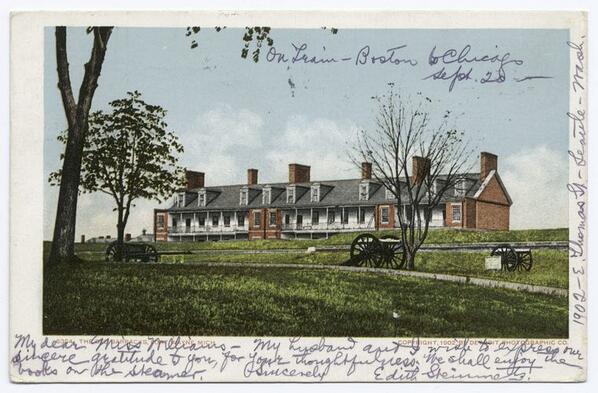 On Train - Boston to Chicago
Sept. 20 -
1902 - E. Thomas St. - Seattle - Wash.
BARRACKS, FORT WAYNE, MICH.
COPYRIGHT, 1902, BY DETROIT PHOTOGRAPHIC CO.
My dear Miss - My husband and I wish to express our
sincere gratitude to you, for your thoughtfulness. We shall enjoy the
books on the steamer. Sincerely Edith